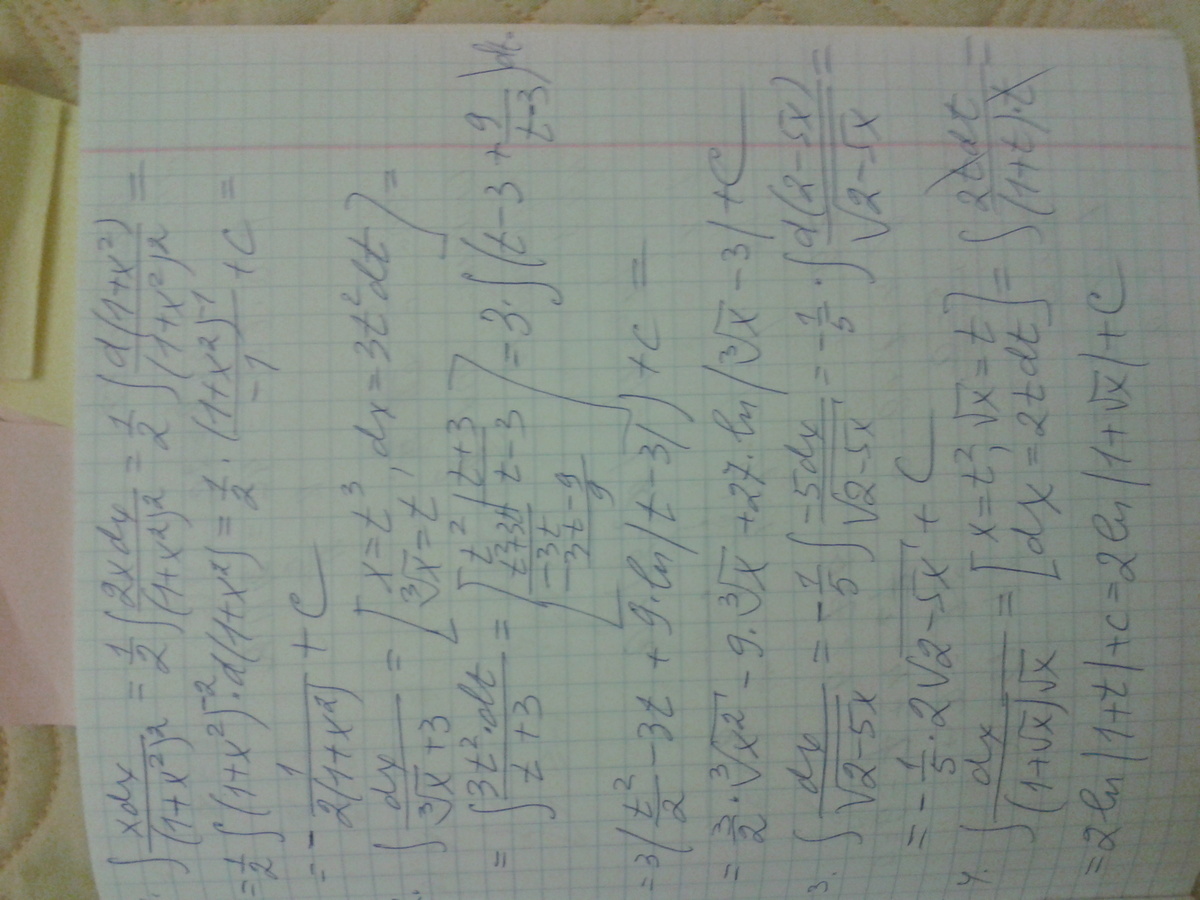 ∫ xdx/(1+x²)² = 1/2 ∫ 2xdx/(1+x²)² = 1/2 ∫ d(1+x²)/(1+x²)² =
= 1/2 ∫ (1+x²)⁻² · d(1+x²) = 1/2 · (1+x²)⁻¹/-1 + c =
= - 1/2(1+x²) + C
∫ dx/(∛x+3) = [x=t³, ∛x=t, dx=3t²dt] =
= ∫ 3t²·dt/(t+3) = [t² | t+3
t²+3t | t-3
-3t
-3t-9
9] = 3·∫(t-3+9/(t-3))dt.
= 3(t²/2 - 3t + 9·ln|t-3|) + c =
= 3/2·∛x² - 9·∛x + 27·ln|∛x-3| + C
3. ∫ dx/√(2-5x) = -1/5 ∫ -5dx/√(2-5x) = -1/5 · ∫ d(2-5x)/√(2-5x) =
= -1/5 · 2√(2-5x) + C
4. ∫ dx/((1+√x)√x) = [x=t², √x=t
dx=2tdt] = ∫ 2tdt/((1+t)·t) =
= 2ln|1+t|+c = 2ln|1+√x|+C